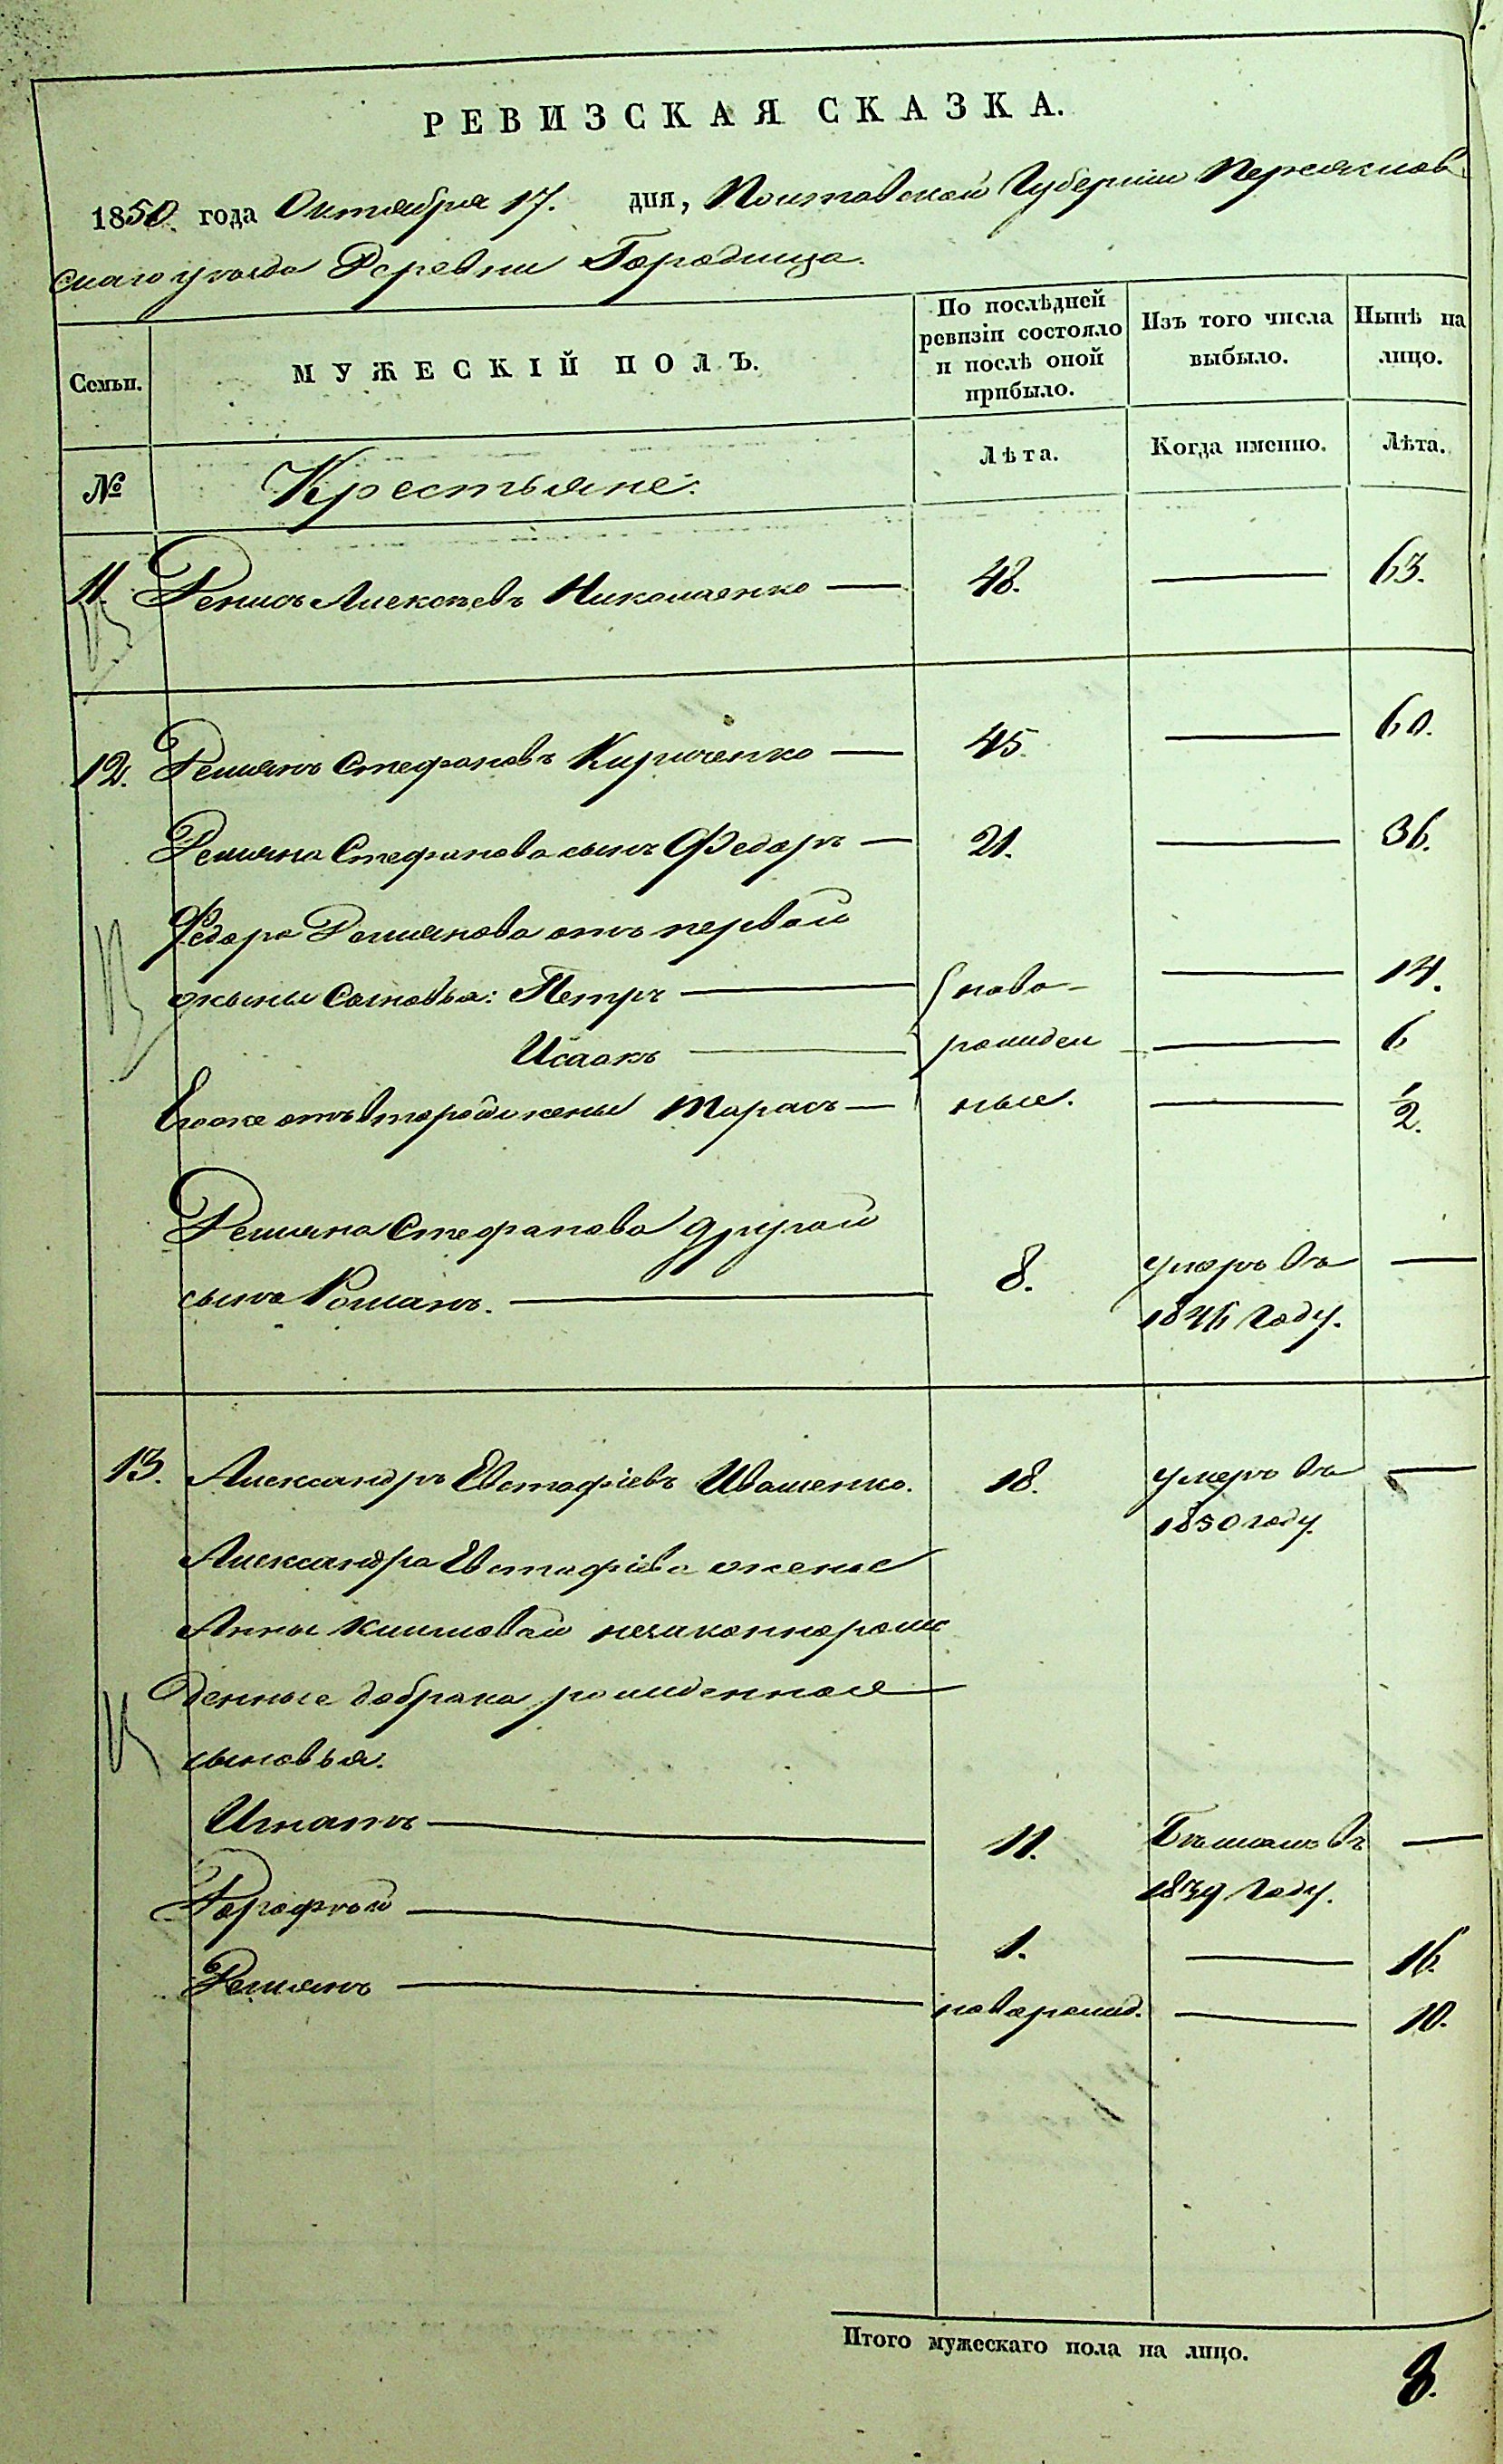 РЕВИЗСКАЯ СКАЗКА.
1850. года Октября 17. дня, Полтавской Губернии Переяслав
скаго уезда Деревни Городища.
Семьи. МУЖЕСКІЙ ПОЛЪ. По послѣдней ревизіи состояло и послѣ оной прибыло. Изъ того числа выбыло. Нынѣ на лицо.
№ Крестьяне. Лѣта. Когда именно. Лѣта.
11. Денисъ Алексѣевъ Николаенко — 48. — 63.
12. Демянъ Стефановъ Кириченко — 45. — 60.
Демяна Стефанова сынъ Федоръ — 21. — 36.
Федора Демянова отъ первой
жыны Сыновья: Петръ — ново- — 14.
Исаакъ — рожден — 6
Егоже отъ второй жены Тарасъ — ные. — 1/2.
Демяна Стефанова другой
сынъ Романъ. — 8. умеръ въ —
1846 году.
13. Александръ Евстафіевъ Ивашенко. 18. умеръ въ —
1850 году.
Александра Евстафіева жены
Анны Климовой незаконнорож
денные до брака рожденные
сыновья.
Игнатъ — 11. Бѣжалъ въ —
1839 году.
Дорофѣй — 1. — 16.
Демянъ — новорожд. — 10.
Итого мужескаго пола на лицо. 8.